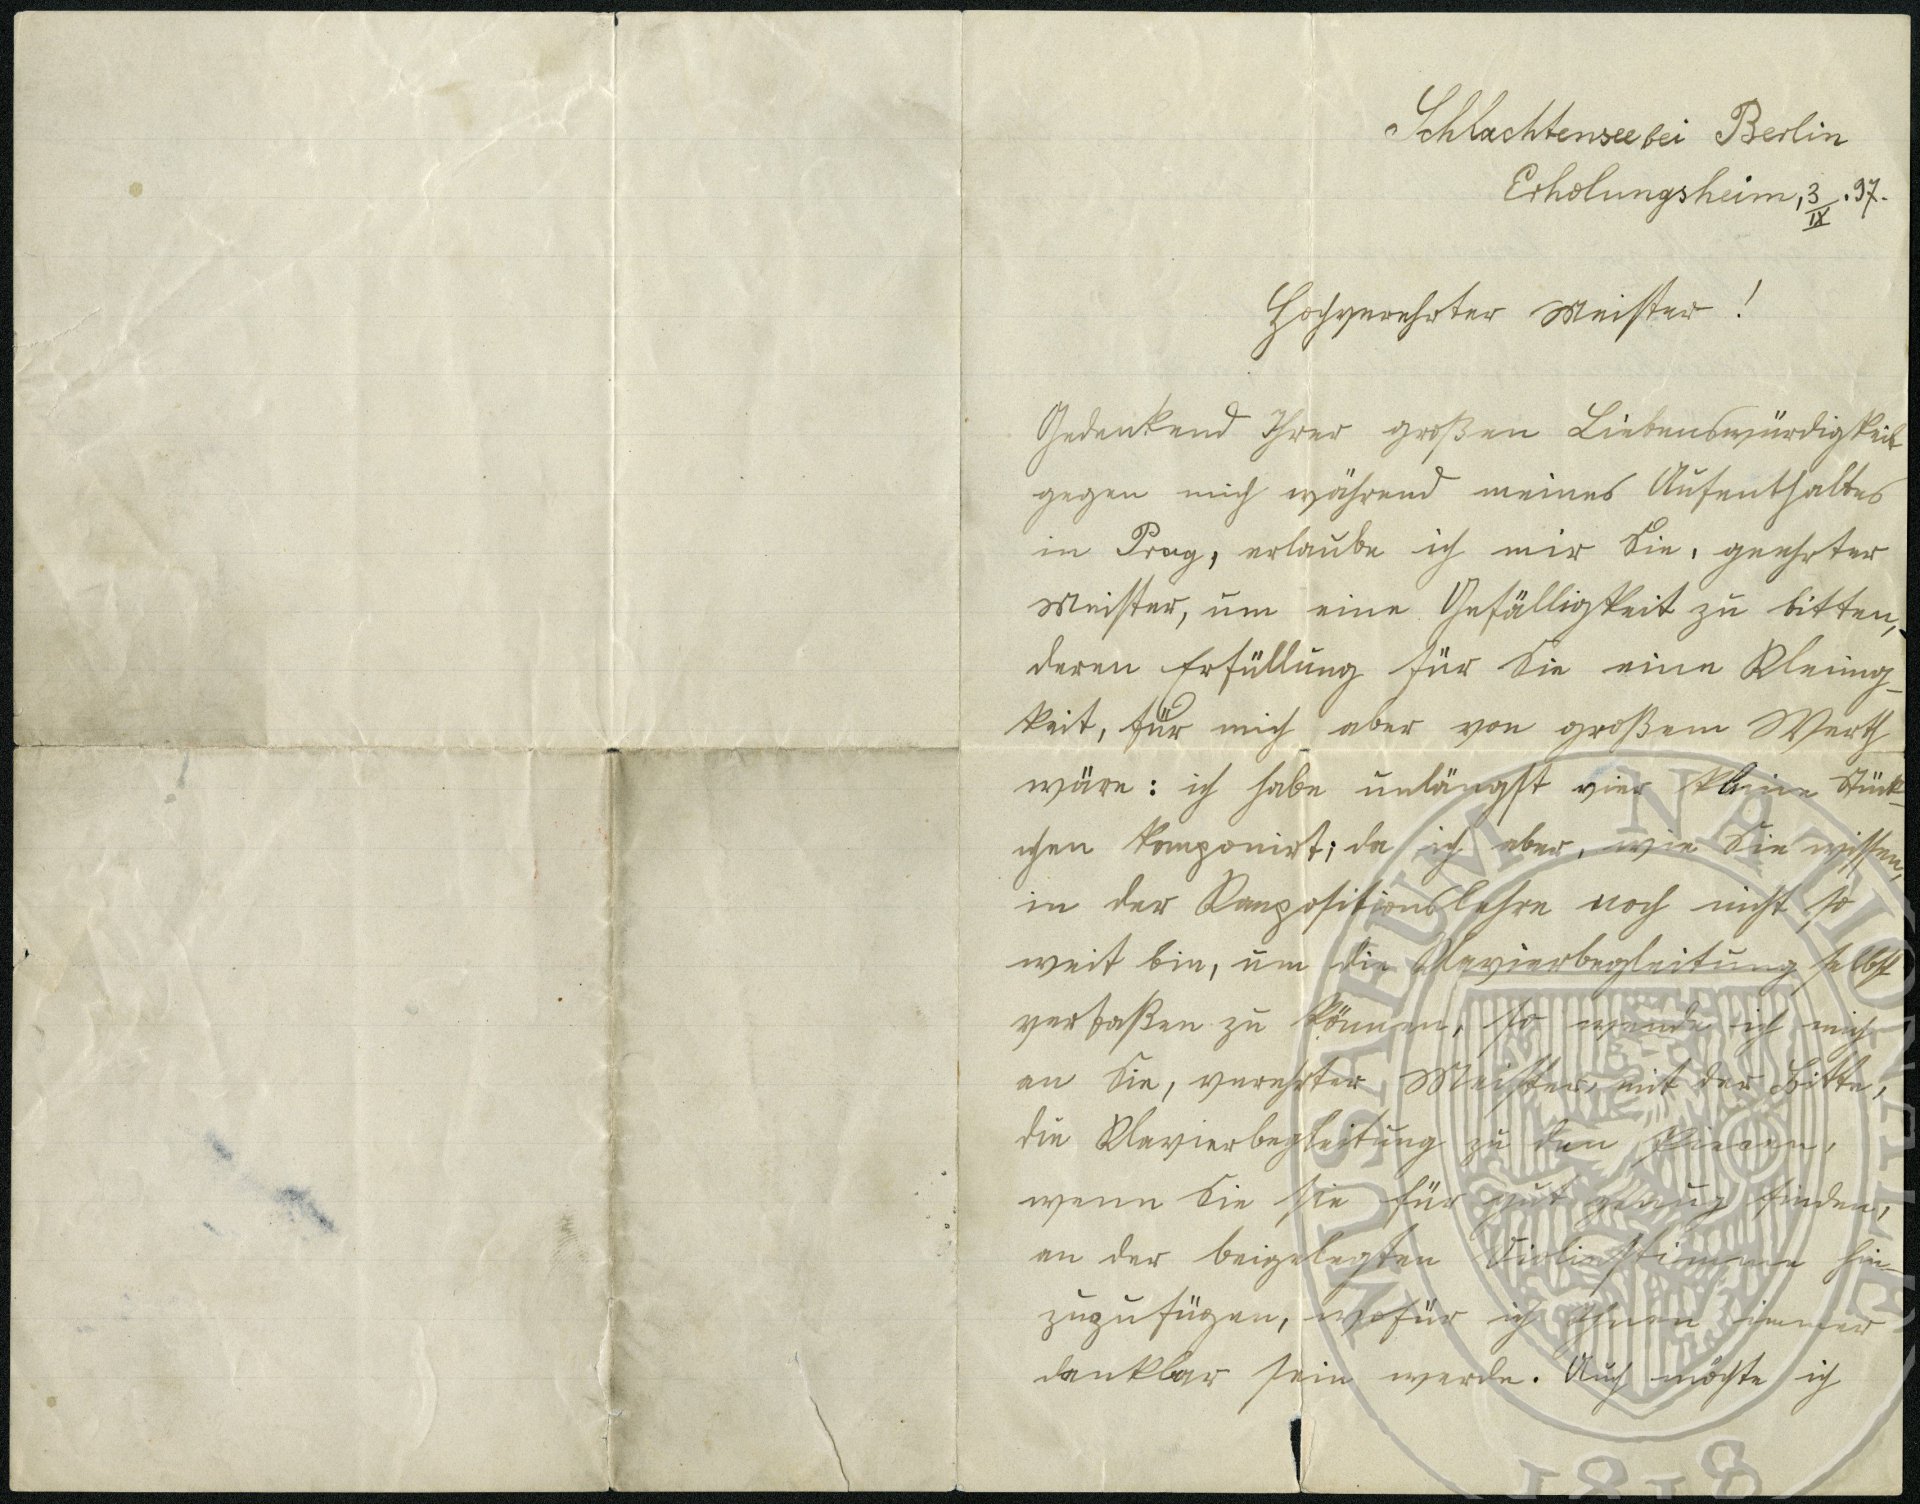 Schlachtensee bei Berlin
Erholungsheim, 3/IX. 97.
Hochverehrter Meister!
Gedenkend Ihrer großen Liebenswürdigkeit
gegen mich während meines Aufenthaltes
in Prag, erlaube ich mir Sie, geehrter
Meister, um eine Gefälligkeit zu bitten,
deren Erfüllung für Sie eine Kleinig-
keit, für mich aber von großem Werth
wäre: ich habe unlängst vier kleine Stück-
chen komponirt; da ich aber, wie Sie wissen,
in der Kompositionslehre noch nicht so
weit bin, um die Klavierbegleitung selbst
verfaßen zu können, so wende ich mich
an Sie, verehrter Meister, mit der Bitte,
die Klavierbegleitung zu den Piecen,
wenn Sie sie für gut genug finden,
an der beigelegten Violinstimme hin-
zuzufügen, wofür ich Ihnen immer
dankbar sein werde. Auch möchte ich
MUSAEUM NATIONALE
1818